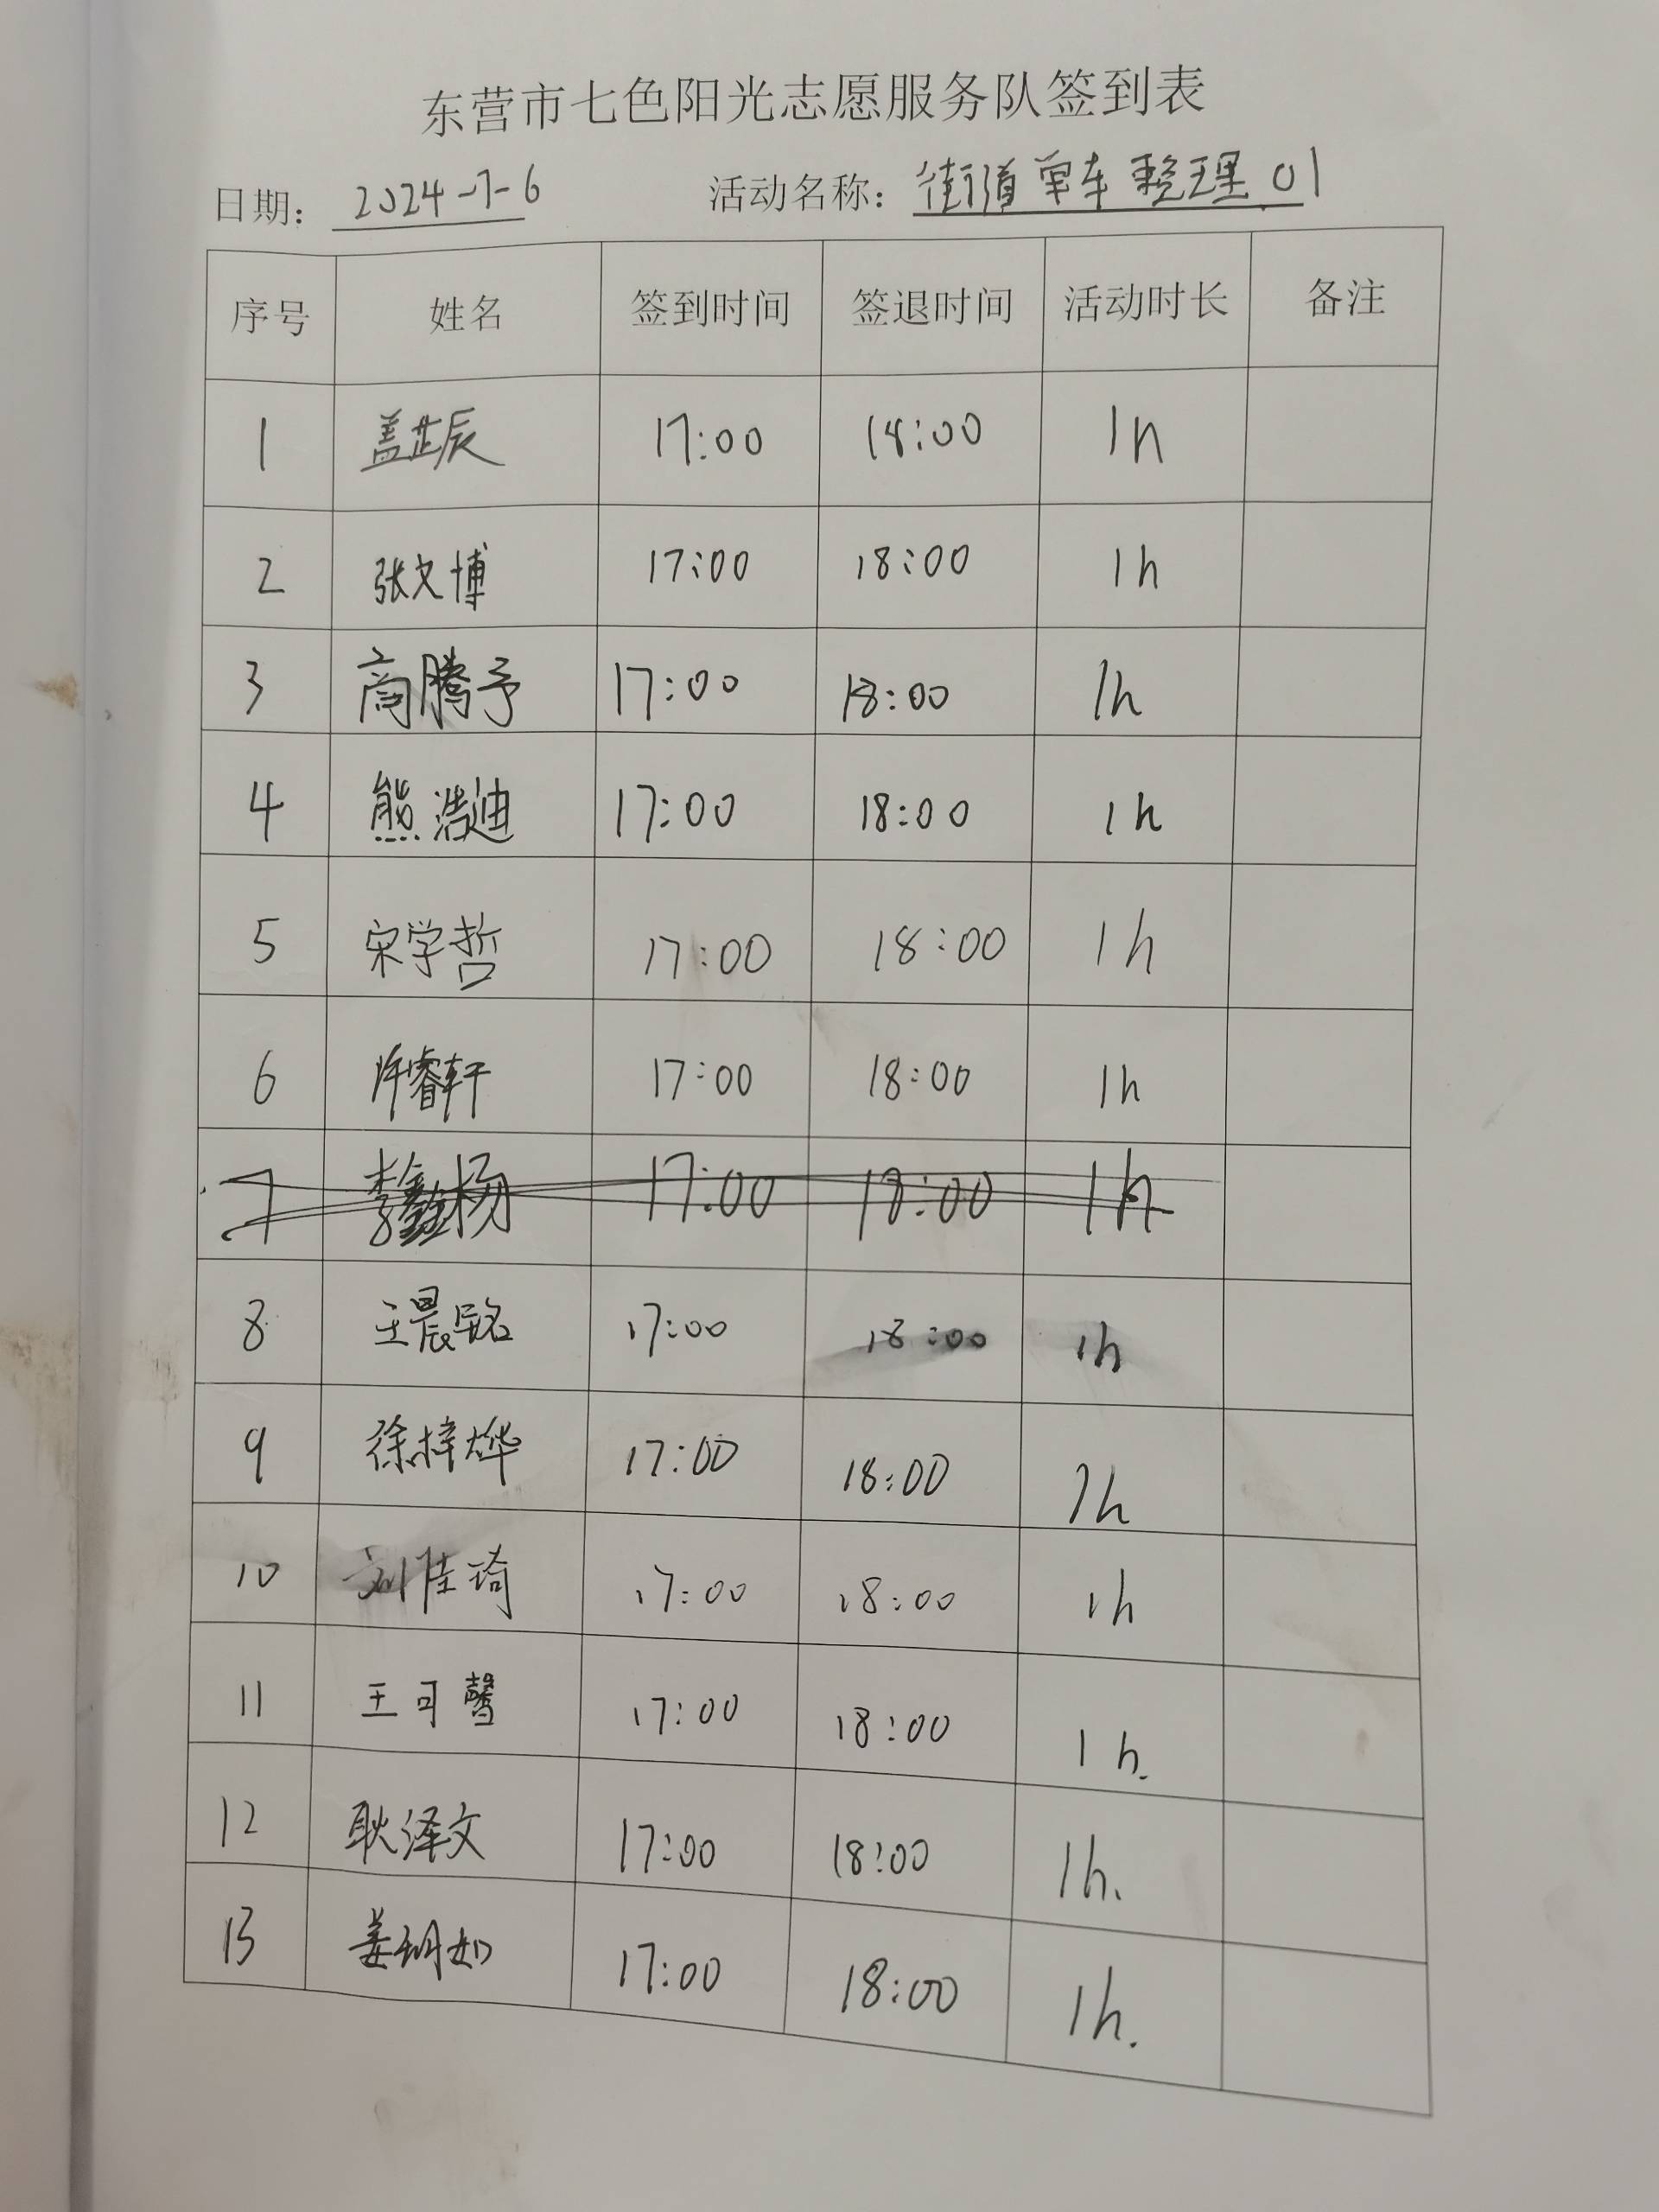 东营市七色阳光志愿服务队签到表
日期：2024-7-6 活动名称：街道单车整理01
序号 姓名 签到时间 签退时间 活动时长 备注
1 盖芷辰 17:00 18:00 1h
2 张文博 17:00 18:00 1h
3 商腾予 17:00 18:00 1h
4 熊浩迪 17:00 18:00 1h
5 宋学哲 17:00 18:00 1h
6 许睿轩 17:00 18:00 1h
7 李鑫杨 17:00 18:00 1h
8 王晨铭 17:00 18:00 1h
9 徐梓烨 17:00 18:00 1h
10 刘佳琦 17:00 18:00 1h
11 王可馨 17:00 18:00 1h.
12 耿泽文 17:00 18:00 1h.
13 姜玥如 17:00 18:00 1h.